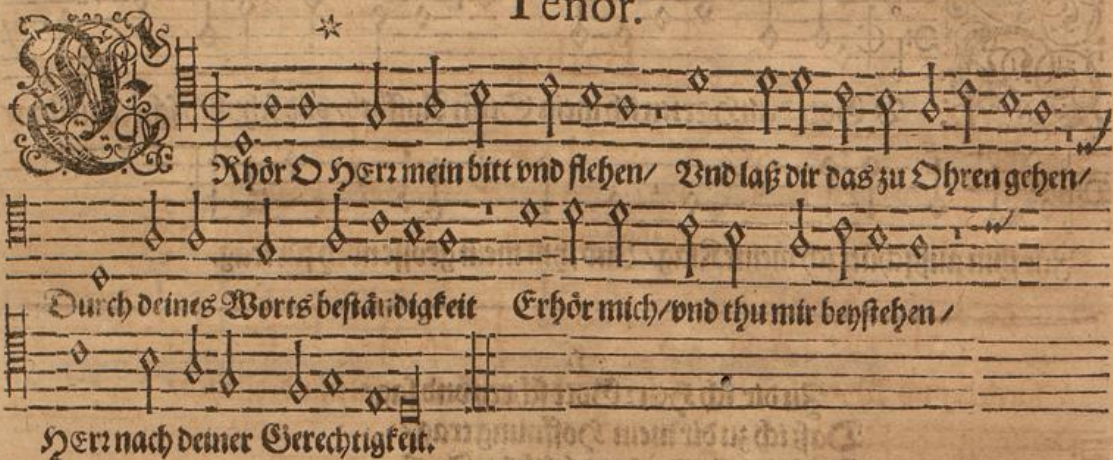 Tenor.
ERhör O HErr mein bitt vnd flehen/ Vnd laß dir das zu Ohren gehen/
Durch deines Worts beständigkeit Erhör mich/vnd thu mir beystehen/
HErr nach deiner Gerechtigkeit.